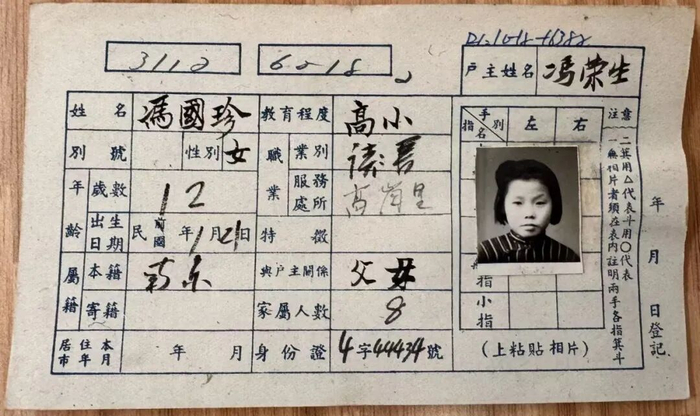 3112
6218
户主姓名 馮荣生
姓名 馮國珍 教育程度 高小
別號 性別 女 職業 業別 读書
年齡 歲數 12 服務處所 高崗里
出生日期 民國 年 1 月 21 日 特徵
屬籍 本籍 南京 與戶主關係 父女
寄籍 家屬人數 8
居住本市年月 年 月 身份證 4字44434號
指名 手別 左 右
指
小指
(上粘貼相片)
注意
一無相片者須在表內註明兩手各指箕斗
二箕用△代表斗用〇代表
年 月 日登記